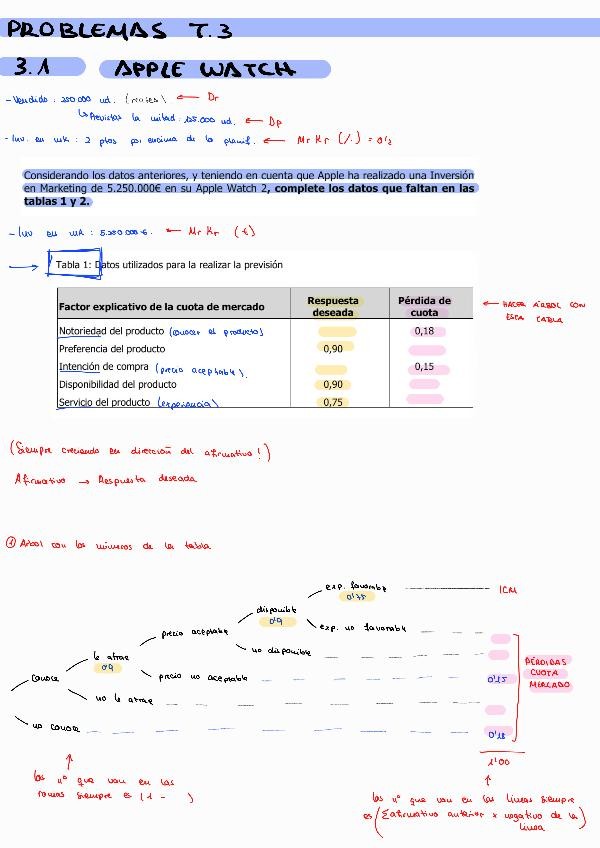 PROBLEMAS T.3
3.1 APPLE WATCH
- Vendido: 250.000 ud. (reales) ← Dr
↳ Previstas la mitad: 125.000 ud. ← Dp
- Inv. en MK: 2 ptos por encima de lo planif. ← Mr Kr (%) = 0'2
Considerando los datos anteriores, y teniendo en cuenta que Apple ha realizado una Inversión
en Marketing de 5.250.000€ en su Apple Watch 2, complete los datos que faltan en las
tablas 1 y 2.
- Inv en MK: 5.250.000€. ← Mr Kr (€)
→ Tabla 1: Datos utilizados para la realizar la previsión
Factor explicativo de la cuota de mercado Respuesta deseada Pérdida de cuota
← HACER ÁRBOL CON
ESTA TABLA
Notoriedad del producto (conocer el producto) 0,18
Preferencia del producto 0,90
Intención de compra (precio aceptable). 0,15
Disponibilidad del producto 0,90
Servicio del producto (experiencia) 0,75
(Siempre creciendo en dirección del afirmativo!)
Afirmativo → Respuesta deseada
① Árbol con los números de la tabla
exp. favorable ICM
0'75
disponible
0'9
exp. no favorable
precio aceptable
no disponible
le atrae
0'9
PÉRDIDAS
CUOTA
MERCADO
conoce
precio no aceptable 0'15
no le atrae
no conoce 0'18
1'00
los nº que van en las
ramas siempre es (1 - )
los nº que van en las líneas siempre
es (Σ afirmativo anterior x negativo de la
línea)